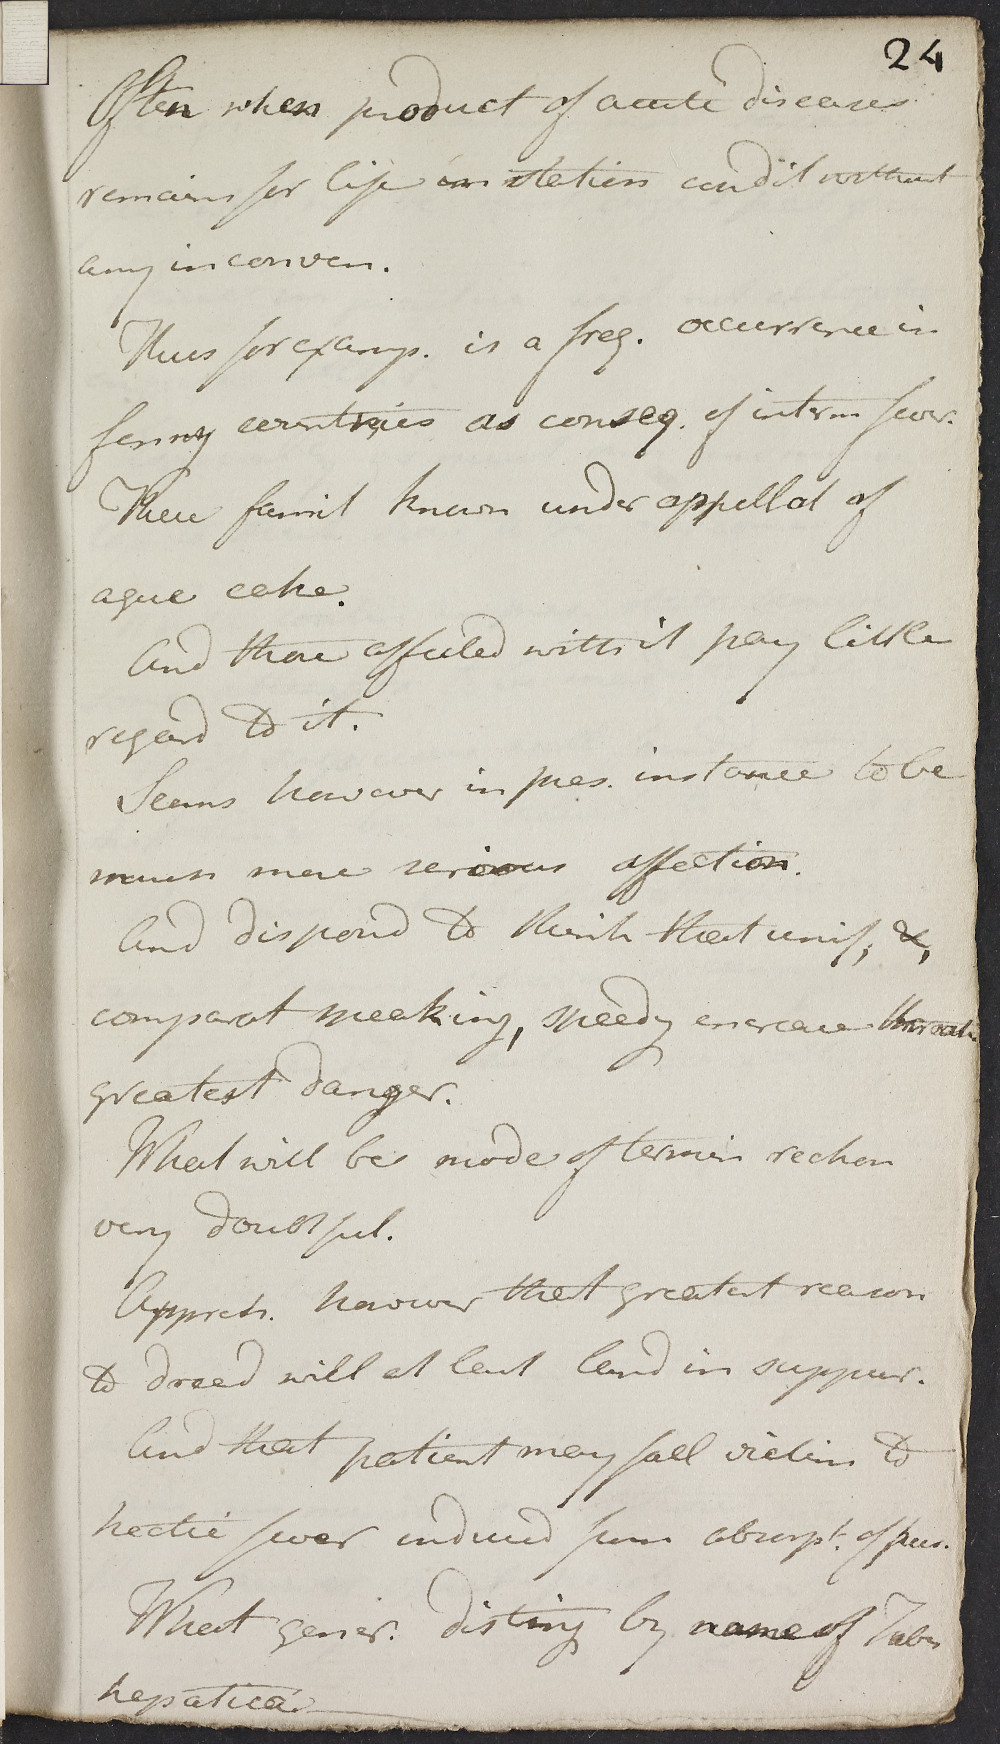 24
Often when product of acute diseases
remains for life in station condit without
any inconven.
Thus for examp. is a freq. occurrence in
fenny countries as conseq. of interm fever.
There famil known under appellat of
ague cake.
And those affected with it pay little
regard to it.
Seems however in pres. instance to be
much more serious affection.
And dispond to think that unif, &,
comparat speaking, speedy encrease threat.
greatest danger.
What will be mode of termin reckon
very doubtful.
Appreh. however that greatest reason
to dread will at last end in suppur.
And that patient may fall victim to
hectic fever induced from absorpt. of pus.
What gener. disting by name of Tabes
hepatica